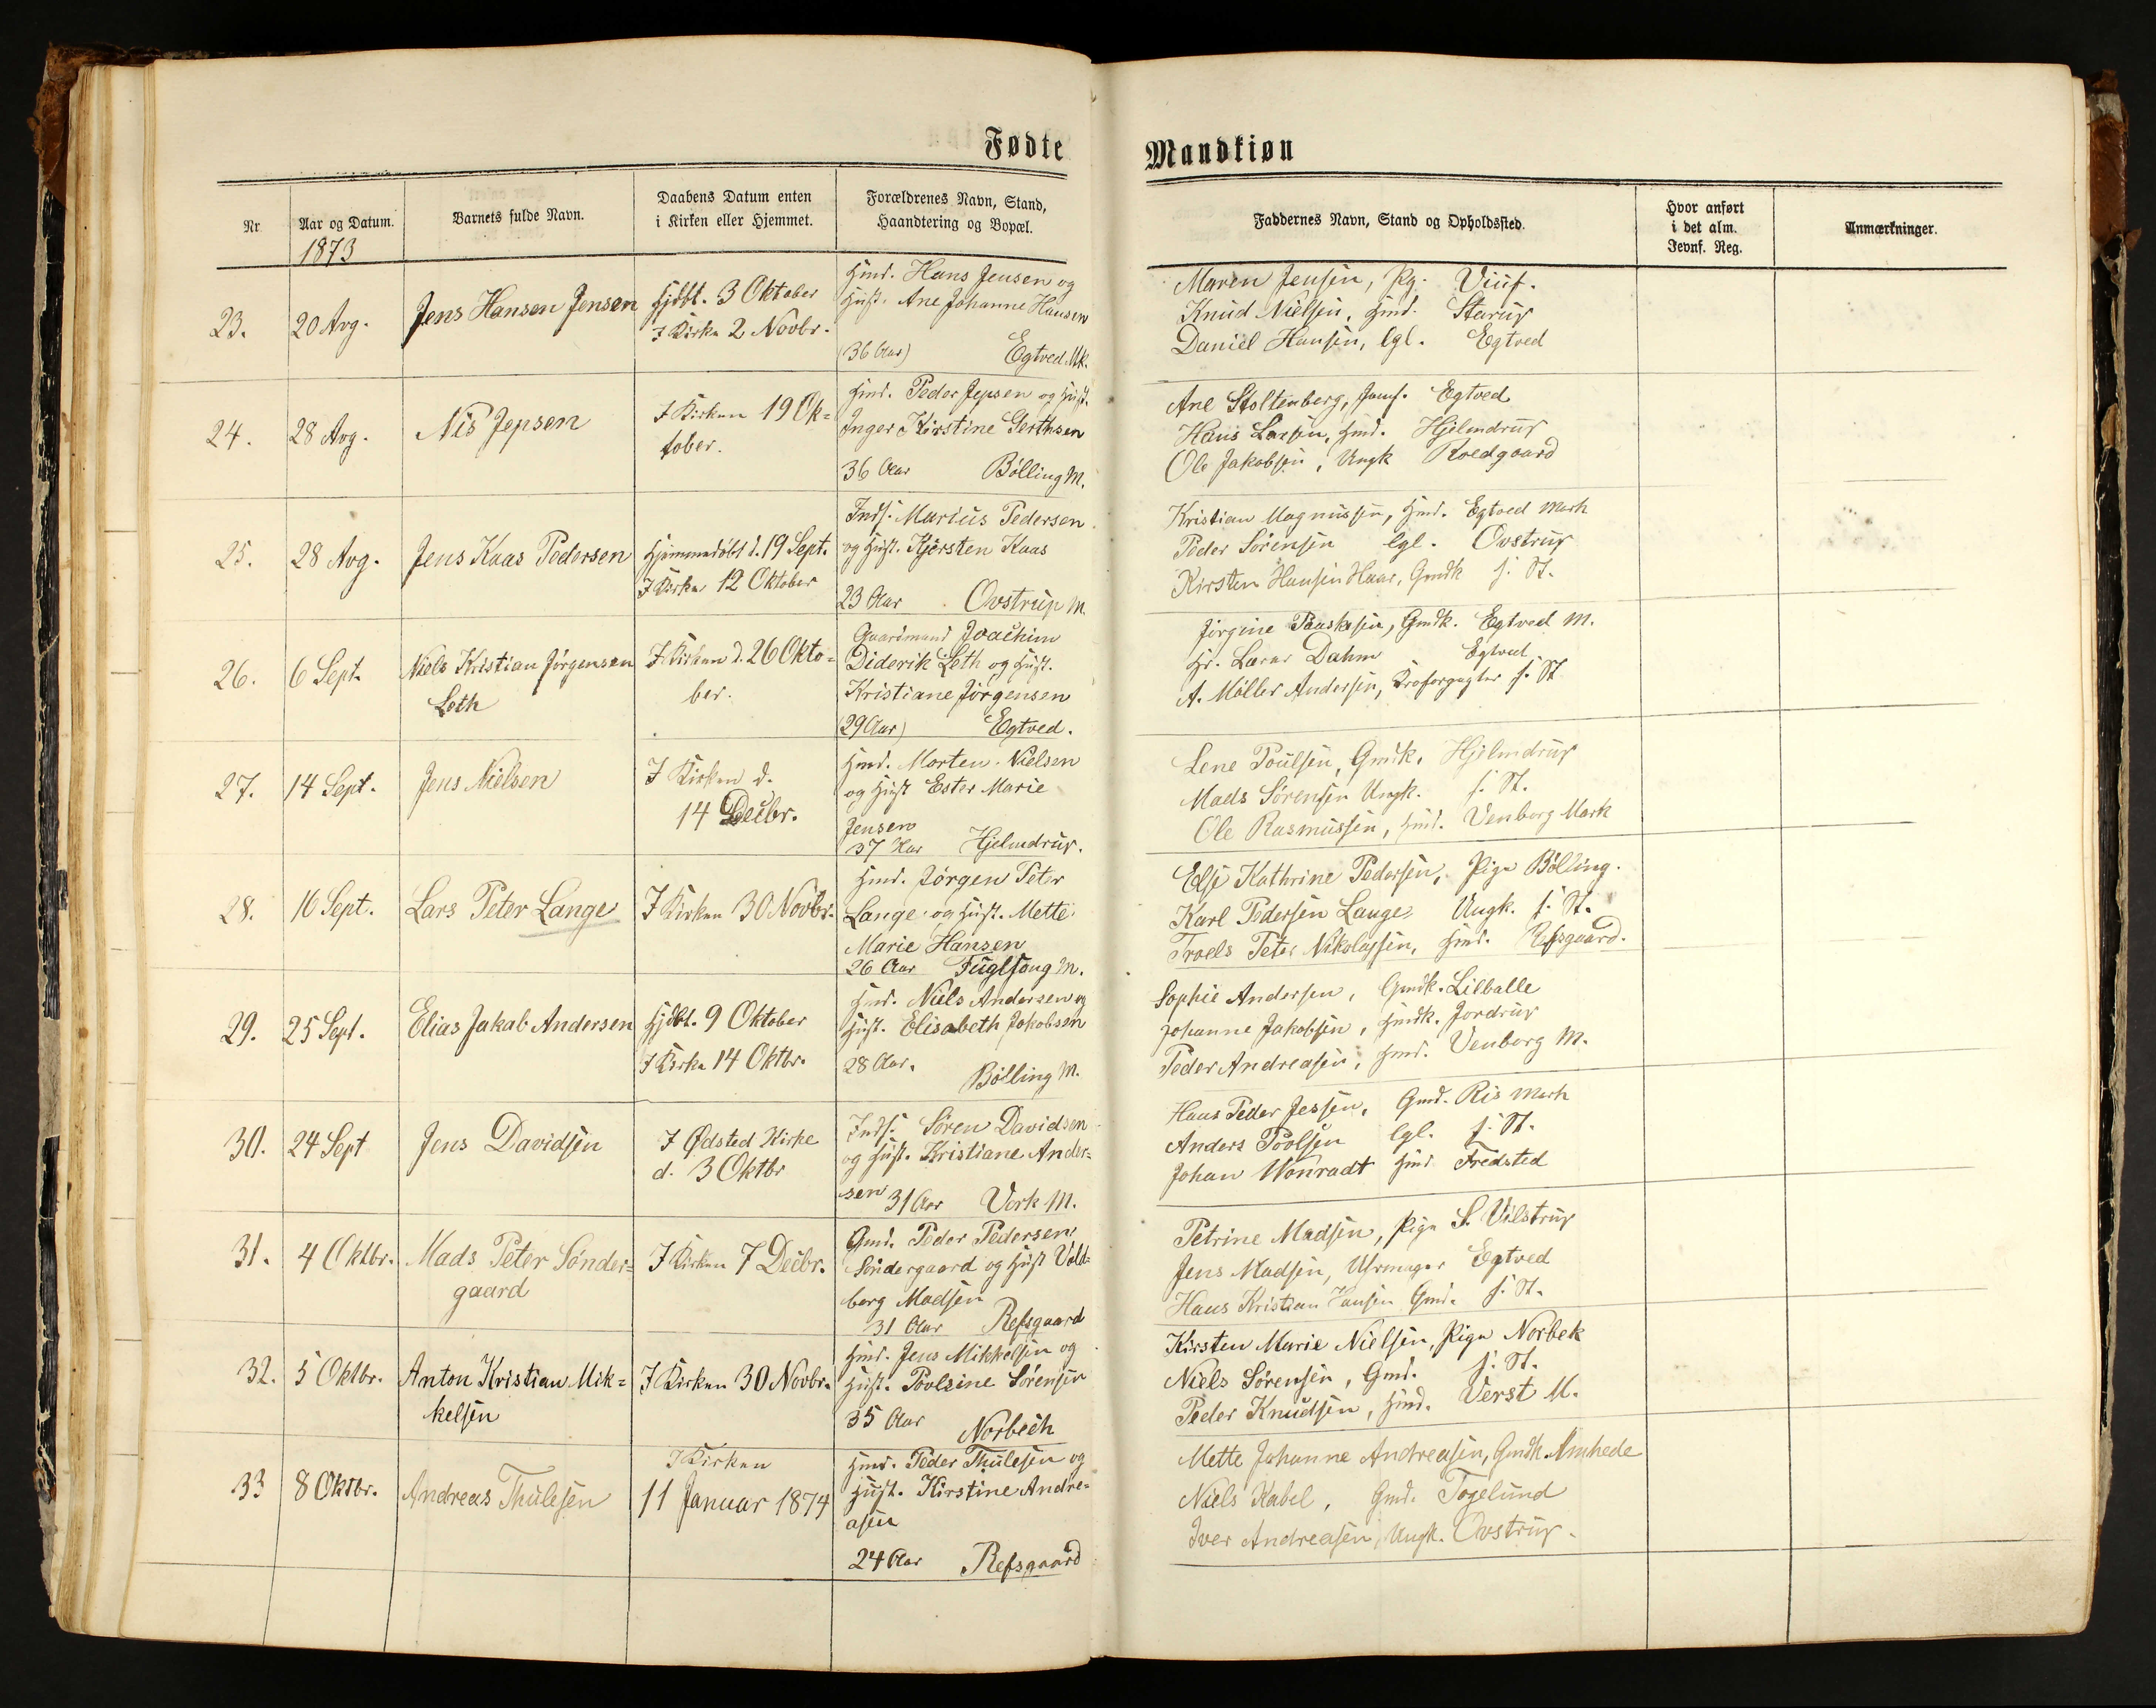 Fødte Mandkiøn
Nr
Aar og Datum.
Barnets fulde Navn.
Daabens Datum enten
i Kirken eller Hjemmet.
Forældrenes Navn, Stand,
Haandtering og Bopæl.
Faddernes Navn, Stand og Opholdssted.
Hvor anført
i det alm.
Jevnf. Reg.
Anmærkninger.
1873
23.
20 Avg.
Jens Hansen Jensen
Hjdbt. 3 Oktober
I Kirke 2 Novbr.
Hmd. Hans Jensen og
Hust. Ane Johanne Hansen
(36 Aar) Egtved Mk.
Maren Jensen, Pg. Viuf.
Knud Nielsen, Hmd. Starup
Daniel Hansen, lgl. Egtved
24.
28 Avg.
Nis Jepsen
I Kirken 19 Ok=
tober.
Hmd. Peder Jepsen og Hust.
Inger Kirstine Gerthsen
36 Aar Bølling M.
Ane Stoltenberg, Jomf. Egtved
Hans Larsen, Hmd. Hjelmdrup
Ole Jakobsen, Ungk Roedgaard
25.
28 Avg.
Jens Kaas Pedersen
Hjemmedøbt d. 19 Sept.
I Kirke 12 Oktober
Inds. Marius Pedersen
og Hust. Kjersten Kaas
23 Aar Ovstrup M.
Kristian Magnussen, Hmd. Egtved Mark
Peder Sørensen lgl. Ovstrup
Kirsten Hansen Haar, Gmdk s. St.
26.
6 Sept.
Niels Kristian Jørgensen
Leth
I Kirken d. 26 Okto=
ber.
Gaardmand Joachim
Diderik Leth og Hust.
Kristiane Jørgensen
(29 Aar) Egtved.
Jørgine Pauskesen, Gmdk. Egtved M.
Hr. Lærer Dahm Egtved
A. Møller Andersen, Kroforpagter s. St
27.
14 Sept.
Jens Nielsen
I Kirken d.
14 Decbr.
Hmd. Morten Nielsen
og Hust Ester Marie
Jensen
37 Aar Hjelmdrup.
Lene Poulsen, Gmdk. Hjelmdrup
Mads Sørensen Ungk. s. St.
Ole Rasmussen, Hmd. Venborg Mark
28.
16 Sept.
Lars Peter Lange
I Kirken 30 Novbr.
Hmd. Jørgen Peter
Lange og Hust. Mette
Marie Hansen
26 Aar Fuglsang M.
Else Kathrine Pedersen, Pige Bølling.
Karl Pedersen Lange, Ungk. s. St.
Troels Peter Nikolajsen, Hmd. Refsgaard.
29.
25 Sept.
Elias Jakob Andersen
Hjdbt. 9 Oktober
I Kirke 14 Oktbr.
Hmd. Niels Andersen og
Hust. Elisabeth Jakobsen
28 Aar. Bølling M.
Sophie Andersen, Gmdk. Lilballe
Johanne Jakobsen, Hmdk. Jordrup
Peder Andreasen, Hmd. Venborg M.
30.
24 Sept
Jens Davidsen
I Ødsted Kirke
d. 3 Oktbr
Inds. Søren Davidsen
og Hust. Kristiane Ander=
sen 31 Aar Vork M.
Hans Peder Jessen, Gmd. Ris Mark
Anders Poulsen lgl. s. St.
Johan Wonradt Hmd Fredsted
31.
4 Oktbr.
Mads Peter Sønder=
gaard
I Kirken 7 Decbr.
Gmd. Peder Pedersen
Søndergaard og Hust Vold=
borg Madsen
31 Aar Refsgaard
Petrine Madsen, Pige S. Vilstrup
Jens Madsen, Uhrmager Egtved
Hans Kristian Hansen Gmd. s. St.
32.
5 Oktbr.
Anton Kristian Mik=
kelsen
I Kirken 30 Novbr.
Hmd. Jens Mikkelsen og
Hust. Povlsine Sørensen
35 Aar Norbech
Kirsten Marie Nielsen, Pige Norbek
Niels Sørensen, Gmd. s. St.
Peder Knudsen, Hmd. Verst M.
33
8 Oktbr.
Andreas Thulesen
I Kirken
11 Januar 1874
Hmd. Peder Thulesen og
Hust. Kirstine Andre=
asen
24 Aar Refsgaard
Mette Johanne Andreasen, Gmdk Amhede
Niels Kabel, Gmd. Tøgelund
Iver Andreasen, Ungk. Ovstrup.